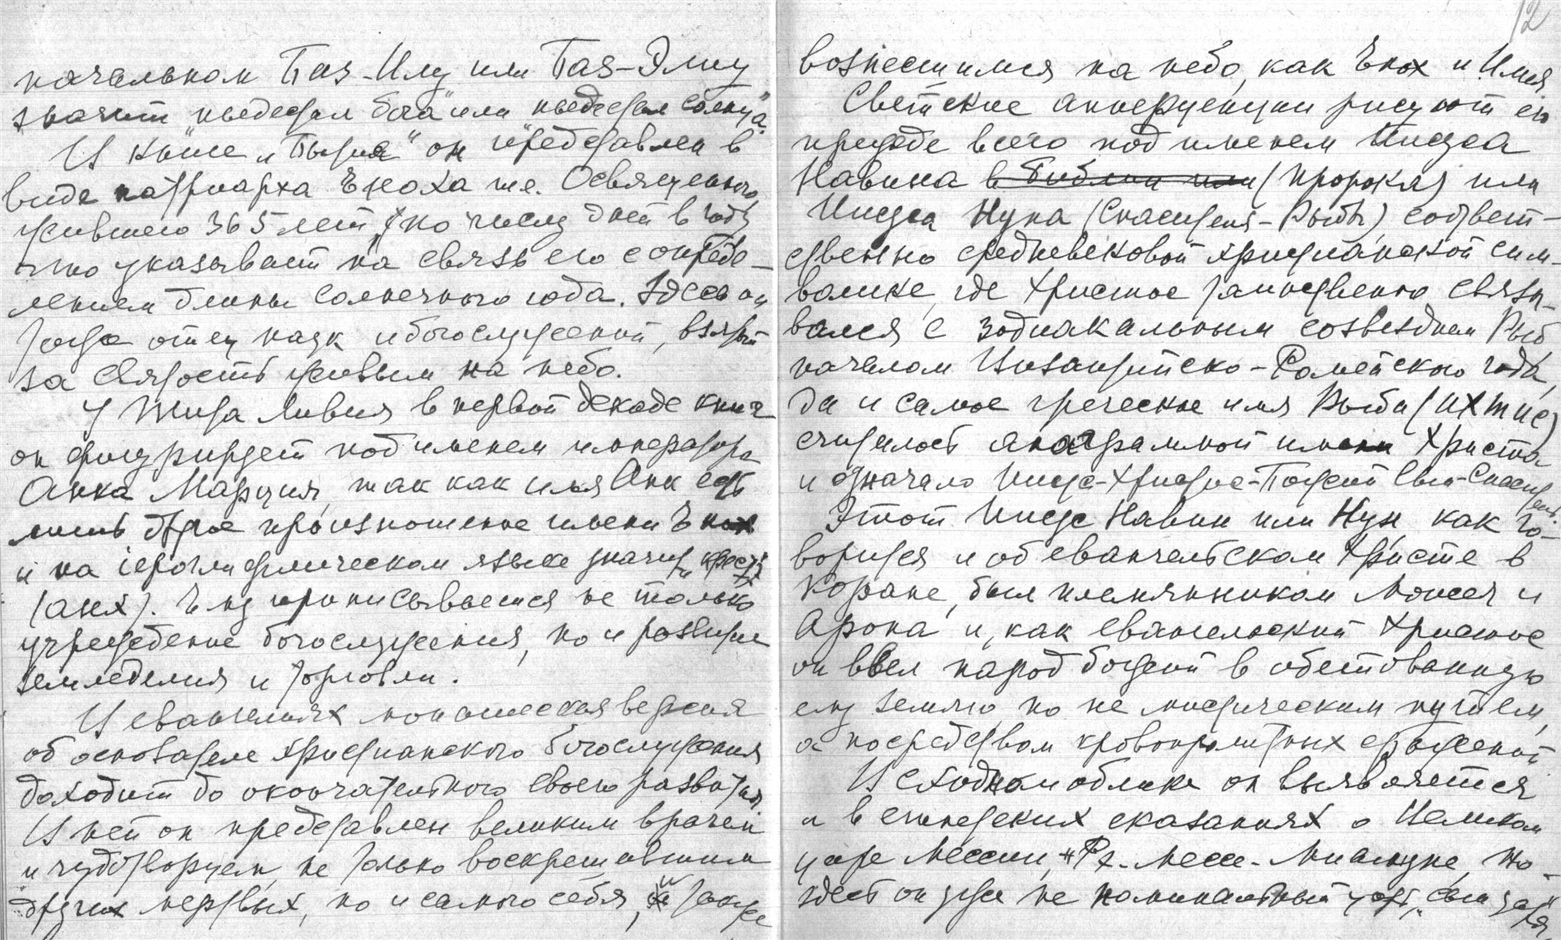 12
начальном Таз-Илу или Таз-Элиу
значит "пьедестал бога" или пьедестал солнца".
В книге "Бытия" он представлен в
виде патриарха Эноха т.е. Освященного,
жившего 365 лет, (по числу дней в году
что указывает на связь его с опреде-
лением длины солнечного года. Здесь он
тоже отец наук и богослужений, взятый
за святость живым на небо.
У Тита Ливия в первой декаде книг
он фигурирует под именем императора
Анка Марция, так как имя Анк есть
лишь другое произношение имени Энох
и на иероглифическом языке значит "крест"
(анх). Ему приписывается не только
учреждение богослужения, но и развитие
земледелия и торговли.
В евангелиях монашеская версия
об основателе христианского богослужения
доходит до окончательного своего развития
В ней он представлен великим врачем
и чудотворцем, не только воскрешавшим
других мертвых, но и самого себя, и также
вознесшимся на небо, как Энох и Илия.
Светские интерпретации рисуют его
прежде всего под именем Иисуса
Навина в Библии или (пророка) или
Иисуса Нуна (Спасителя-Рыбы) соответ-
ственно средневековой христианской сим-
волике, где Христос таинственно связы-
вался с зодиакальным созвездием Рыб
началом Византийско-Ромейского года,
да и самое греческое имя Рыбы (ихтис)
считалось анаграммой имени Христа
и означало Иисус-Христос-Божий Сын-Спаситель.
Этот Иисус Навин или Нун, как го-
ворится и об евангельском Христе в
Коране, был племянником Моисея и
Арона и, как евангельский Христос
он ввел народ божий в обетованную
ему землю но не мистическим путем,
а посредством кровопролитных сражений
В сходном облике он выявляется
и в египетских сказаниях о Великом
царе Мессии, Ра-Месс-Миамуне, но
здесь он уже не номинальный царь, "сын царя",